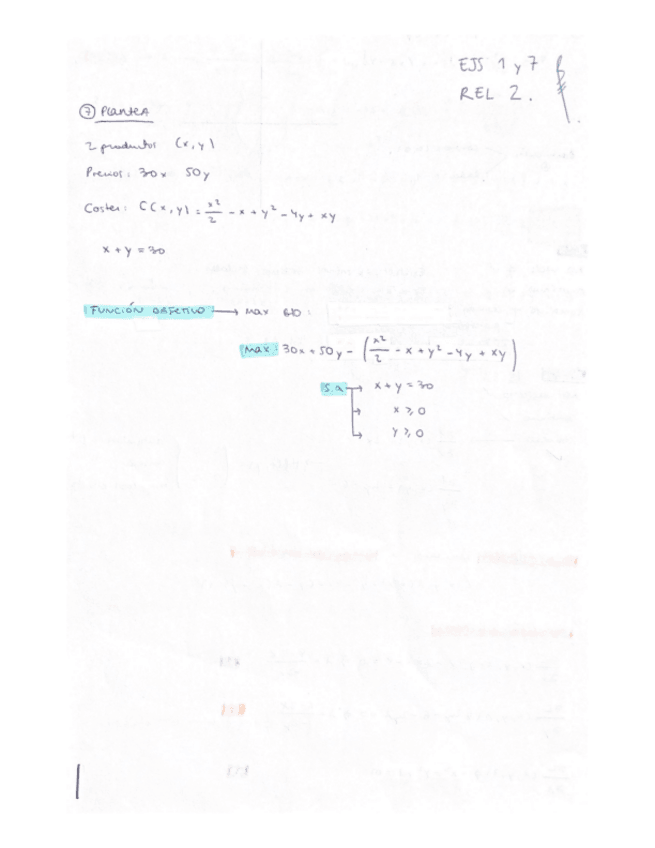 EJS 1 y 7
REL 2.
⑦ Plantea
2 productos (x, y)
Precios: 30x 50y
Costes: C(x, y) = x²/2 - x + y² - 4y + xy
x + y = 30
FUNCIÓN OBJETIVO → max BO:
Max: 30x + 50y - (x²/2 - x + y² - 4y + xy)
S.a → x + y = 30
→ x ≥ 0
→ y ≥ 0